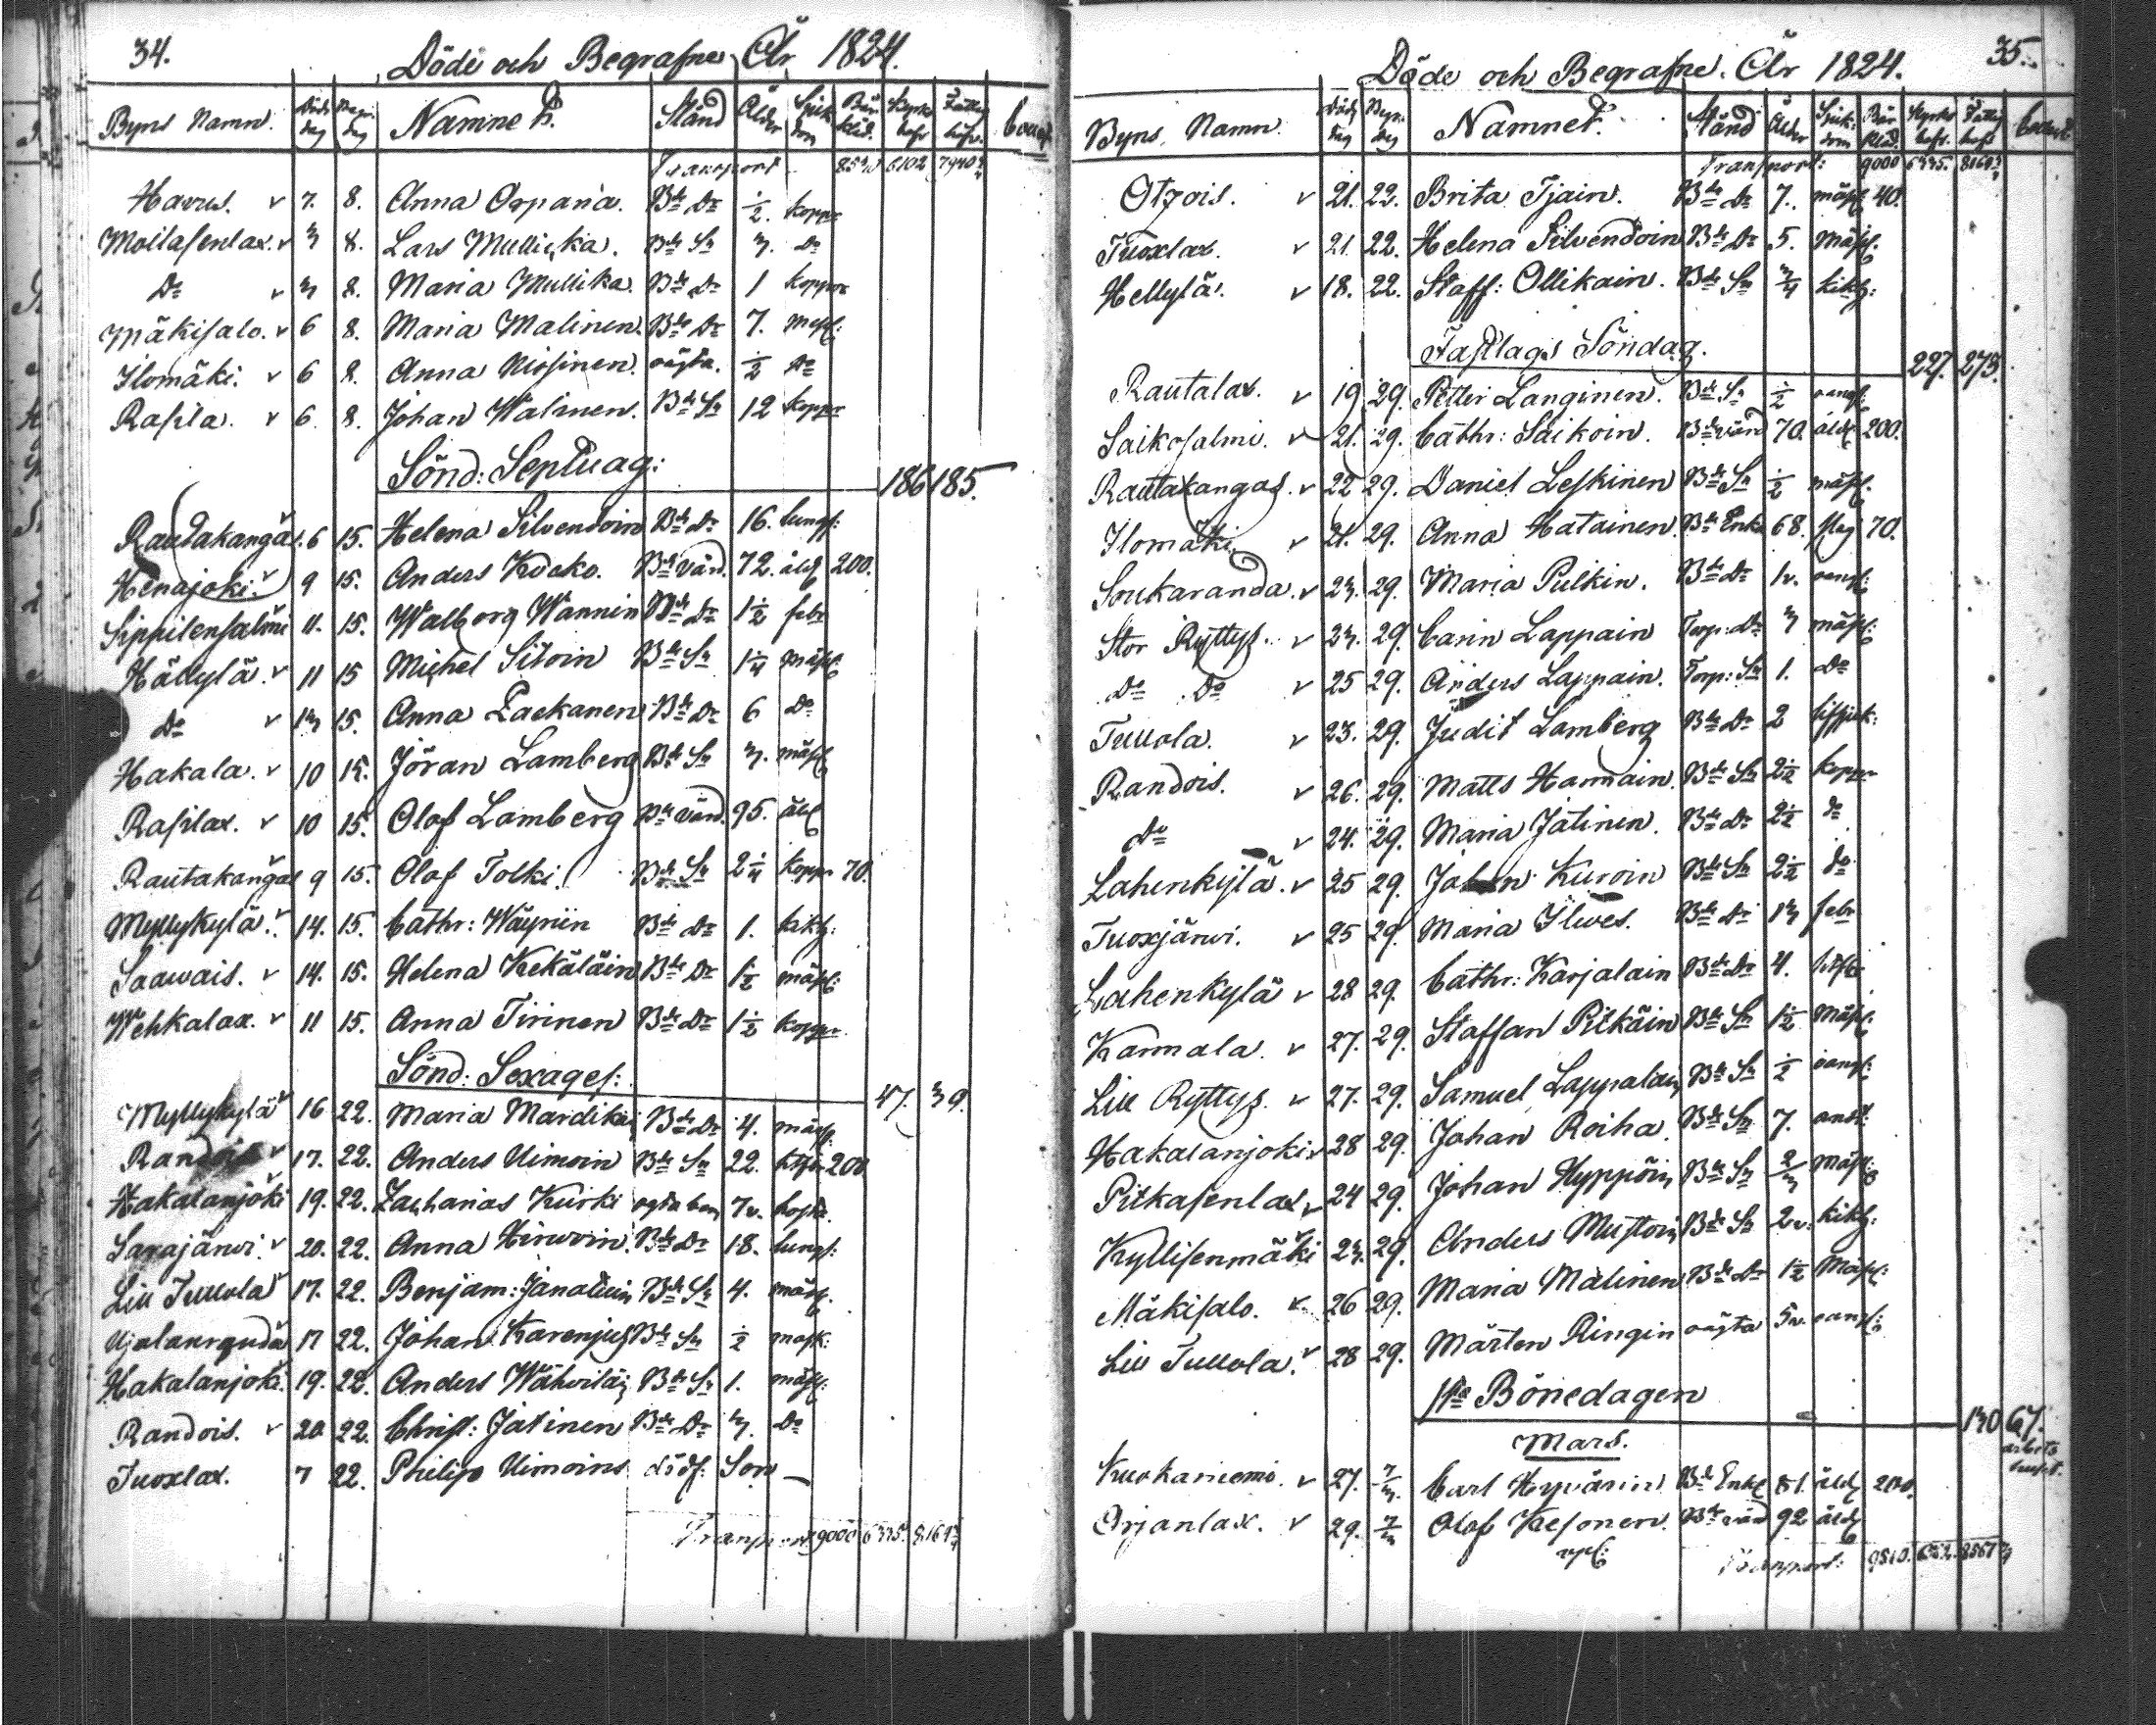 34.
Döde och Begrafne, År 1824.
Byns Namn. Död: dag Begr: dag Namnet. Stånd Ålder Sjuk dom Bår kläd. Kyrko håfv Fattig håfv.
Transport 6102 7940
7. 8. Anna Orpana. Bde Dr ½. koppr
Moitasenlax. v 3 8. Lars Mullikka. Bde Sn 3. Do
Do v 3 8. Maria Mullikka. Bde Dr 1 koppor
Mäkisalo. v 6 8. Maria Malinen. Bde Dr 7. mäsl:
Ilomäki. v 6 8. Anna Nissinen. oägta. ½ Do
Rasila. v 6. 8. Johan Walmen. Bde Sn 12 koppr
Sönd: Septuag:
186 185.
Rautakangas. v 6 15. Helena Silvendoin Bde Dr 16. lungs:
Henajoki. v 9 15. Anders Kuoko. Bde värd. 72. åld 200.
Sippilensalmi 11. 15. Walborg Wannin Bde Dr 1½ febr
Hällylä. v 11 15 Michel Siloin Bde Sn 1¼ mäsl.
Do v 13 15. Anna Packanen Bde Dr 6 Do
Hakala. v 10 15. Jöran Lamberg Bde Sn 3. mäsl
Rasilax. v 10 15. Olof Lamberg Bde värd. 95. åld
Rautakangas 9 15. Olof Tolki. Bde Sn 2¼ koppr 70.
Myllykylä. v 14. 15. Cathr: Wäyriin Bde Dr 1. kikh:
Saawais. v 14. 15. Helena Kekäläin Bde Dr 1½ mäsl:
Wehkalax. v 11 15. Anna Tirinen Bde Dr 1½ koppr
Sönd: Sexages:
47. 39.
Myllykylä v 16 22. Maria Mardikai Bde Dr 4. mäsl.
Randois v 17. 22. Anders Uimoin Bde Sn 22. 200
Hakalanjoki 19. 22. Zacharias Kurki 7v.
Sarajärvi. v 20. 22. Anna Hirvoin. Bde Dr 18. lungs:
Lill Tullola v 17. 22. Benjam: Janatuin Bde Sn 4. mäsl.
17 22. Johan Karenjus Bde Sn ½
Hakalanjoki. 19. 22. Anders Wähviläi Bde Sn 1. mäsl:
Randois. v 20 22. Christ: Jatinen Bde Dr 3. Do
Tuoxlax. 7 22. Philip Uimoins dödf: Son —
Transport 9000 6335. 8169
35.
Döde och Begrafne. År 1824.
Byns Namn. Död dag Begr. dag Namnet. Stånd Ålder Sjuk: dom Bår kläd. Kyrko håfv. Fattig håfv
Transport: 9000 6335. 8169
Otzois. v 21. 22. Brita Tjain. Bde Dr 7. mäsl 40.
Tuoxlax. v 21. 22. Helena Silvendoin Bde Dr 5. Mäsl.
Hellylä. v 18. 22. Staff: Ollikain. Bde Sn ¾ kikh:
Fastlags Söndag.
227. 273.
Rautalax. v 19 29. Petter Langinen. Bde Sn ½
Saikosalmi. v 21. 29. Cathr: Saikoin. Bde värd 70. åld 200.
Rautakangas. v 22 29. Daniel Leskinen Bde Sn ½ mäsl.
Ilomäki v 21. 29. Anna Hatainen. Bde Enka 68. slag 70.
Soukaranda. v 23. 29. Maria Pulkin. Bde Dr 1v.
Stor Ryttys. v 23. 29. Carin Lappain Torp: Dr 3 mäsl:
Do Do v 25 29. Anders Lappain. Torp: Sn 1. Do
Tullola. v 23. 29. Judit Lamberg Bde Dr 2
Randois. v 26. 29. Matts Hannain. Bde Sn 2½ koppr
do v 24. 29. Maria Jätinen. Bde Dr 2½ do
Lahenkylä. v 25 29. Johan Kuroin Bde Sn 2½ do
Tuoxjärvi. v 25 29. Maria Ilwes. Bde Dr 13 febr
Lahenkylä v 28 29. Cathr: Karjalain Bde Dr 4.
Karmala. v 27. 29. Staffan Pitkäin Bde Sn 1½ Mäsl:
Lill Ryttys. v 27. 29. Samuel Lappalain Bde Sn ½
Hakalanjoki v 28 29. Johan Roiha. Bde Sn 7.
Pitkasenlax v 24 29. Johan Hyppöin Bde Sn mäsl:
Kyllisenmäki 23. 29. Anders Mustoin Bde Sn 2v. kikh:
Mäkisalo. v 26 29. Maria Malinen Bde Dr 1½ Mäsl:
Lill Tullola. v 28 29. Mårten Ringin oägta 5v.
1sta Bönedagen
130 67.
Mars.
Kuokaniemi. v 27. 7/3. Carl Hyvärin Bde Enkl 81. åld 200.
Orjanlax. v 29. 7/3 Olof Kesonen. Bde värd 92 åld
Transport: